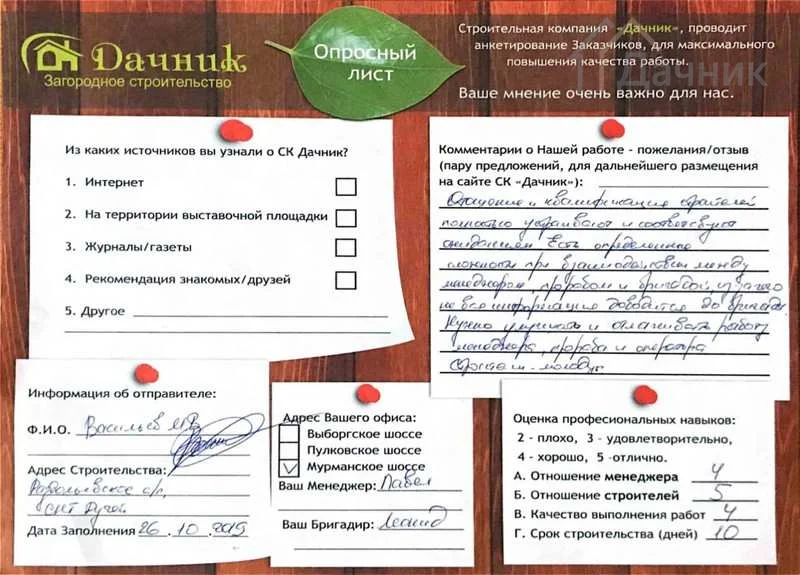 Дачник
Загородное строительство
Опросный
лист
Строительная компания «Дачник», проводит
анкетирование Заказчиков, для максимального
повышения качества работы.
Дачник
Ваше мнение очень важно для нас.
Из каких источников вы узнали о СК Дачник?
1. Интернет
2. На территории выставочной площадки
3. Журналы/газеты
4. Рекомендация знакомых/друзей
5. Другое
Комментарии о Нашей работе - пожелания/отзыв
(пару предложений, для дальнейшего размещения
на сайте СК «Дачник»):
Отношение и квалификация строителей
полностью устраивают и соответствуют
ожиданиям Есть определенные
сложности при взаимодействии между
менеджером, прорабом и бригадой, из за чего
не вся информация доводится до бригады.
Нужно улучшать и отлаживать работу
менеджера, прораба и оператора
Строители - молодцы
Информация об отправителе:
Ф.И.О. Васильев
Адрес Строительства:
с/п,
СНТ
Дата Заполнения 26.10.2019
Адрес Вашего офиса:
Выборгское шоссе
Пулковское шоссе
Мурманское шоссе
Ваш Менеджер: Павел
Ваш Бригадир: Леонид
Оценка профессиональных навыков:
2 - плохо, 3 - удовлетворительно,
4 - хорошо, 5 -отлично.
А. Отношение менеджера 4
Б. Отношение строителей 5
В. Качество выполнения работ 4
Г. Срок строительства (дней) 10